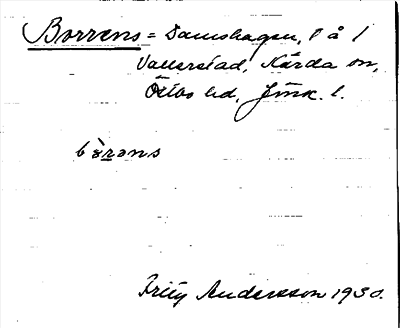 Borrens = Damshagen, l å l
Vallerstad, Kärda sn,
Östbo hd, Jönk. l.
bòrəns
Fritz Andersson 1930.